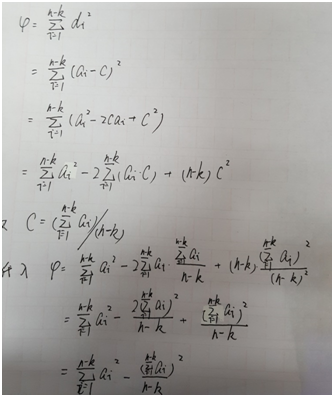 φ = Σ_{i=1}^{n-k} di²
= Σ_{i=1}^{n-k} (ai - C)²
= Σ_{i=1}^{n-k} (ai² - 2Cai + C²)
= Σ_{i=1}^{n-k} ai² - 2Σ_{i=1}^{n-k} (ai·C) + (n-k) C²
C = (Σ_{i=1}^{n-k} ai)/(n-k)
入 φ = Σ_{i=1}^{n-k} ai² - 2Σ_{i=1}^{n-k} ai · (Σ_{i=1}^{n-k} ai)/(n-k) + (n-k) (Σ_{i=1}^{n-k} ai)²/(n-k)²
= Σ_{i=1}^{n-k} ai² - 2(Σ_{i=1}^{n-k} ai)²/(n-k) + (Σ_{i=1}^{n-k} ai)²/(n-k)
= Σ_{i=1}^{n-k} ai² - (Σ_{i=1}^{n-k} ai)²/(n-k)